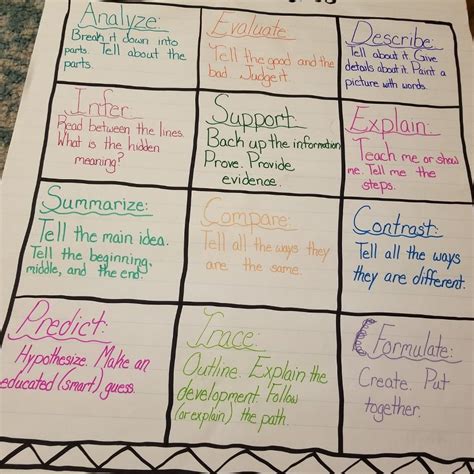 Analyze:
Break it down into
parts. Tell about the
parts.
Evaluate:
Tell the good and the
bad. Judge it.
Describe:
Tell about it. Give
details about it. Paint a
picture with words.
Infer:
Read between the lines.
What is the hidden
meaning?
Support:
Back up the information
Prove. Provide
evidence.
Explain:
Teach me or show
me. Tell me the
steps.
Summarize:
Tell the main idea.
Tell the beginning,
middle, and the end.
Compare:
Tell all the ways they
are the same.
Contrast:
Tell all the ways
they are different.
Predict:
Hypothesize. Make an
educated (smart) guess.
Trace:
Outline. Explain the
development. Follow
(or explain) the path.
Formulate:
Create. Put
together.